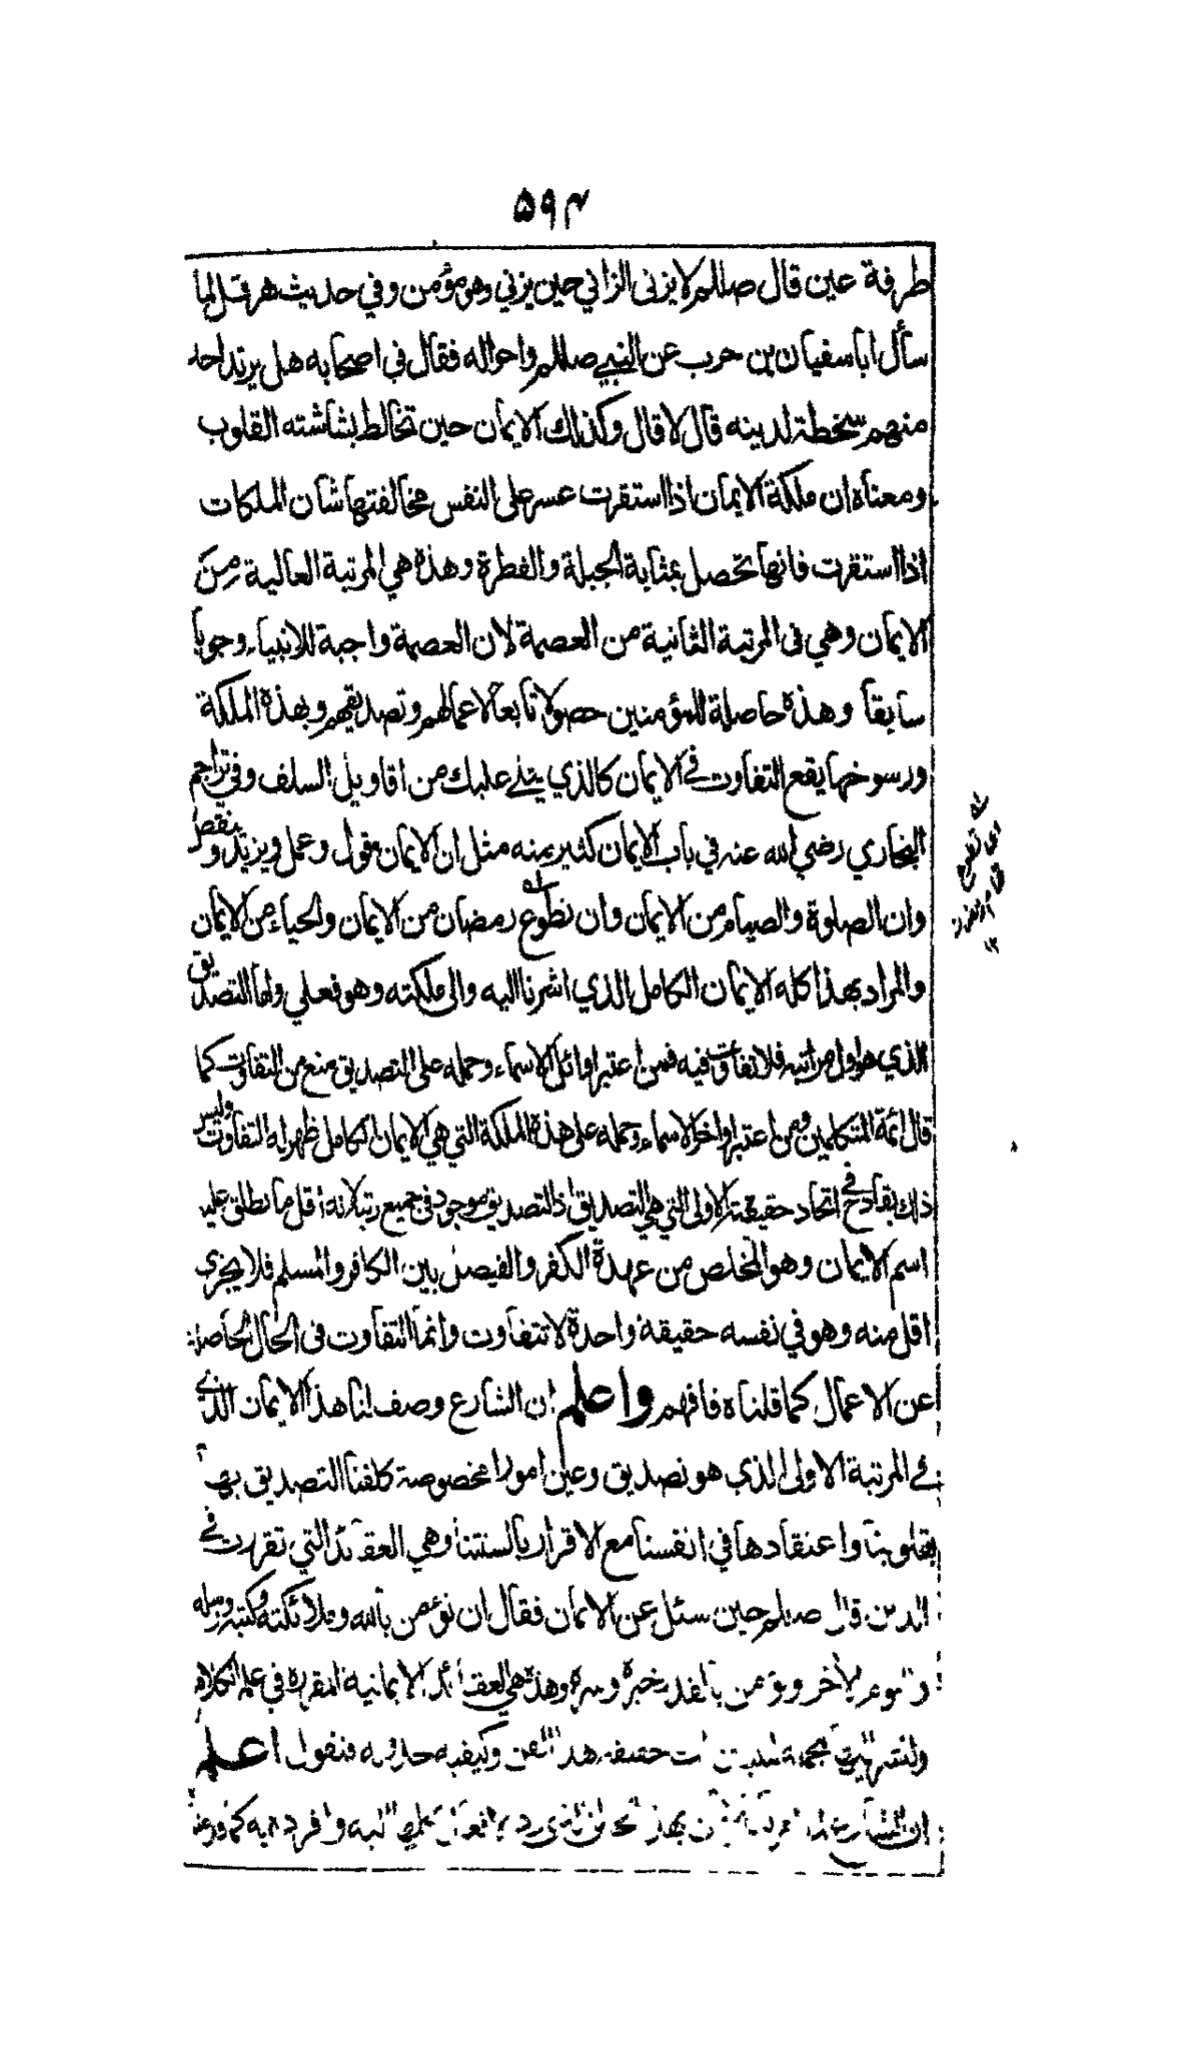 ۵۹۴
طرفة عين قال صللم لا يزنى الزاني حين يزني وهو مؤمن وفي حديث هرقل لما
سأل اباسفيان بن حرب عن النبي صللم واحواله فقال في اصحابه هل يرتد احد
منهم سخطة لدينه قال لا قال وكذلك الايمان حين تخالط بشاشته القلوب
ومعناه ان ملكة الايمان اذا استقرت عسر على النفس مخالفتها شأن الملكات
اذا استقرت فانها تحصل بمثابة الجبلة والفطرة وهذه هي المرتبة العالية من
الايمان وهي في المرتبة الثانية من العصمة لان العصمة واجبة للانبياء وجوبا
سابقا وهذه حاصلة للمؤمنين حصولا تابعا لاعمالهم وتصديقهم وبهذه الملكة
ورسوخها يقع التفاوت في الايمان كالذي يتلى عليك من اقاويل السلف وفي تراجم
البخاري رضي الله عنه في باب الايمان كثير منه مثل ان الايمان قول وعمل ويزيد وينقص
وان الصلوة والصيام من الايمان وان تطوع رمضان من الايمان والحياء من الايمان
والمراد بهذا كله الايمان الكامل الذي اشرنا اليه والى ملكته وهو فعلي واما التصديق
الذي هو اول مراتبه فلا تفاوت فيه فمن اعتبر اوائل الاسماء وحمله على التصديق منع من التفاوت كما
قال ائمة المتكلمين ومن اعتبر اواخر الاسماء وحمله على هذه الملكة التي هي الايمان الكامل ظهر له التفاوت وليس
ذلك بقادح في اتحاد حقيقته الاولى التي هي التصديق اذ التصديق موجود في جميع رتبه لانه اقل ما يطلق عليه
اسم الايمان وهو المخلص من عهدة الكفر والفيصل بين الكافر والمسلم فلا يجزى
اقل منه وهو في نفسه حقيقة واحدة لا تتفاوت وانما التفاوت في الحال الحاصلة
عن الاعمال كما قلناه فافهم واعلم ان الشارع وصف لنا هذا الايمان الذي
في المرتبة الاولى الذي هو تصديق وعين امورا مخصوصة كلفنا التصديق بها
بقلوبنا واعتقادها في انفسنا مع الاقرار بالسنتنا وهي العقائد التي تقررت في
الدين قال صللم حين سئل عن الايمان فقال ان تؤمن بالله وملائكته وكتبه ورسله
واليوم الاخر وتؤمن بالقدر خيره وشره وهذه هي العقائد الايمانية المقررة في علم الكلام
ولنشر اليها مجملة لتتبين حقيقة هذا الفن وكيفية حدوثه فنقول اعلم
ان الشارع لما امرنا بهذا الخالق الذي رد الافعال كلها اليه وافرده به كما